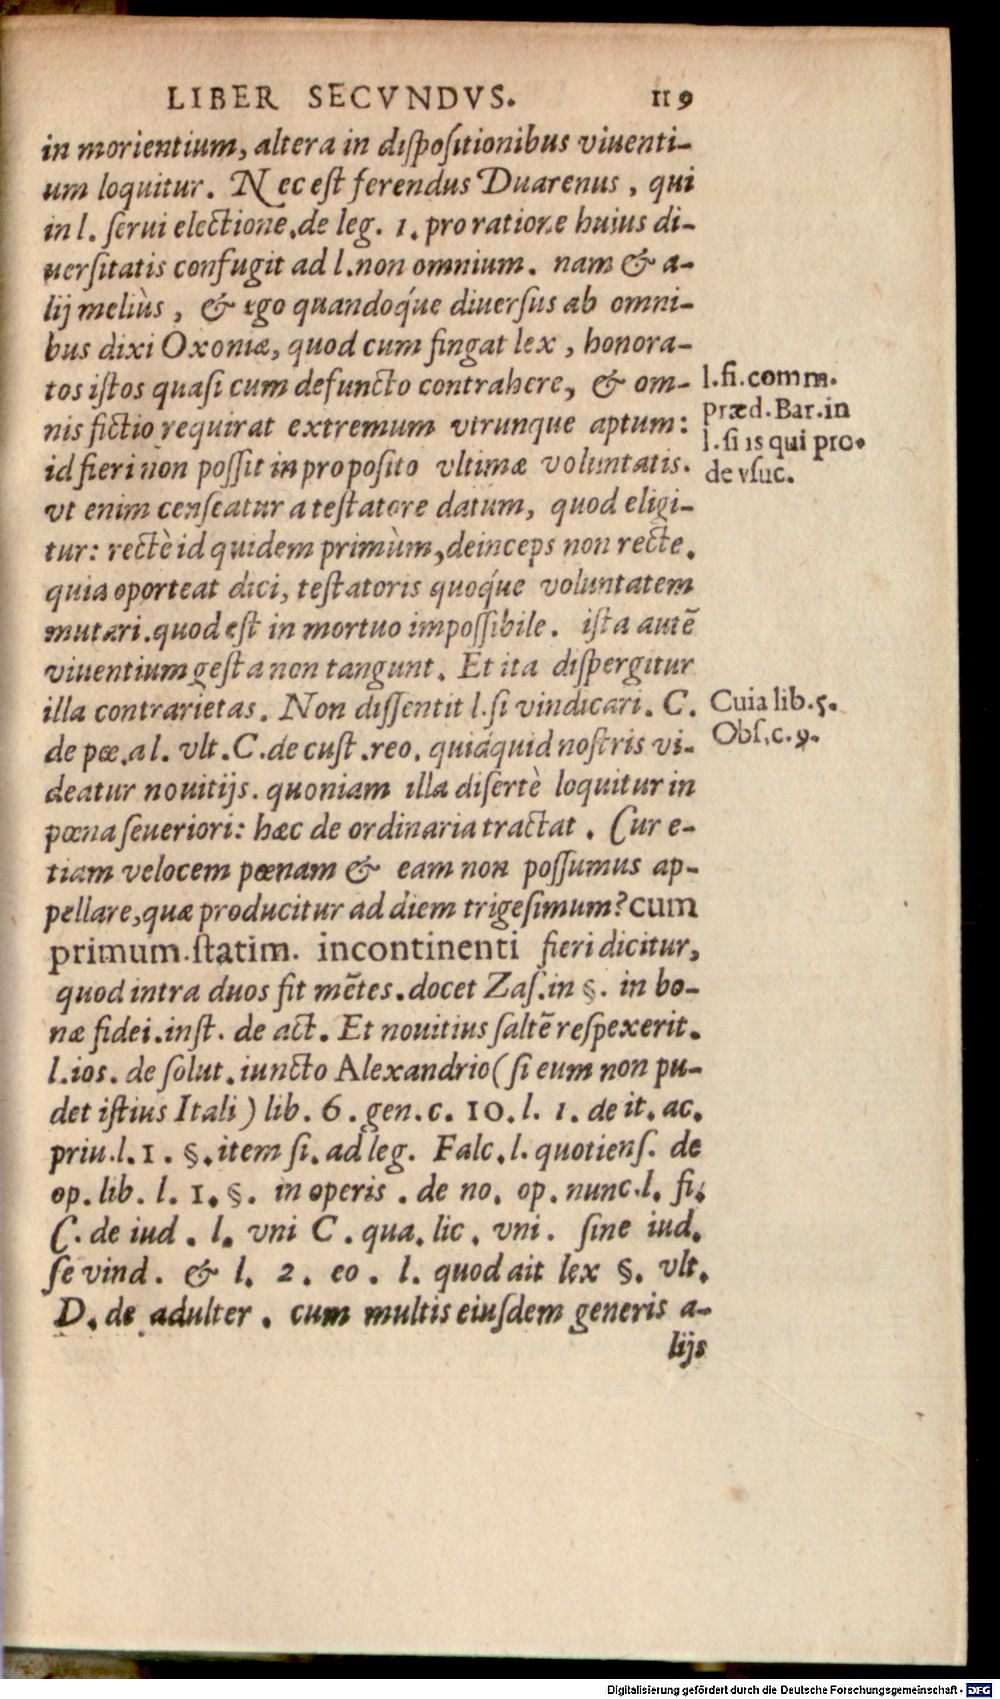 LIBER SECVNDVS. 119
in morientium, altera in diſpoſitionibus viuenti-
um loquitur. Nec eſt ferendus Duarenus, qui
in l. ſerui electione, de leg. 1. pro ratione huius di-
uerſitatis confugit ad l. non omnium. nam & a-
lij meliùs, & ego quandoq́ue diuerſus ab omni-
bus dixi Oxoniæ, quod cum fingat lex, honora-
tos iſtos quaſi cum defuncto contrahere, & om-
nis fictio requirat extremum vtrunque aptum:
id fieri non poſſit in propoſito vltimæ voluntatis.
vt enim cenſeatur a teſtatore datum, quod eligi-
tur: rectè id quidem primùm, deinceps non recte.
quia oporteat dici, teſtatoris quoq́ue voluntatem
mutari. quod eſt in mortuo impoſſibile. iſta autē
viuentium geſta non tangunt. Et ita diſpergitur
illa contrarietas. Non diſſentit l. ſi vindicari. C.
de pœ. a l. vlt. C. de cuſt. reo. quicquid noſtris vi-
deatur nouitijs. quoniam illa diſertè loquitur in
pœna ſeueriori: hæc de ordinaria tractat. Cur e-
tiam velocem pœnam & eam non poſſumus ap-
pellare, quæ producitur ad diem trigeſimum? cum
primum. ſtatim. incontinenti fieri dicitur,
quod intra duos fit mēſes. docet Zaſ. in §. in bo-
næ fidei. inſt. de act. Et nouitius ſaltē reſpexerit.
l. 105. de ſolut. iuncto Alexandrio (ſi eum non pu-
det iſtius Itali) lib. 6. gen. c. 10. l. 1. de it. ac.
priu. l. 1. §. item ſi. ad leg. Falc. l. quotienſ. de
op. lib. l. 1. §. in operis. de no. op. nunc. l. fi.
C. de iud. l. vni C. qua. lic. vni. ſine iud.
ſe vind. & l. 2. eo. l. quod ait lex §. vlt.
D. de adulter. cum multis eiuſdem generis a-
lijs
l. ſi. comm.
præd. Bar. in
l. ſi is qui pro.
de vſuc.
Cuia lib. 5.
Obſ. c. 9.
Digitalisierung gefördert durch die Deutsche Forschungsgemeinschaft - DFG